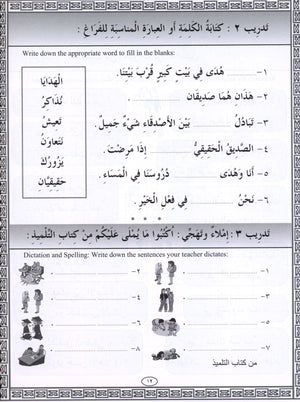 تدريب ٢ : كِتَابَةُ الكَلِمَةِ أَو العِبَارَةِ المُنَاسِبَةِ لِلفَرَاغِ :
Write down the appropriate word to fill in the blanks:
١- ........ هُدَى فِي بَيْتٍ كَبِيرٍ قُرْبَ بَيْتِنَا.
٢- هَذَانِ هُمَا صَدِيقَانِ ........
٣- تَبَادُلُ ........ بَيْنَ الأَصْدِقَاءِ شَيْءٌ جَمِيلٌ.
٤- الصَّدِيقُ الحَقِيقِيُّ ........ إِذَا مَرِضْتَ.
٥- أَنَا وَهُدَى ........ دُرُوسَنَا فِي المَسَاءِ.
٦- نَحْنُ ........ فِي فِعْلِ الخَيْرِ.
الْهَدَايَا
نُذَاكِرُ
تَعِيشُ
نَتَعَاوَنُ
يَزُورُكَ
حَقِيقِيَّانِ
* * *
تدريب ٣ : إِمْلاَءٌ وَتَهَجِّي : اُكْتُبُوا مَا يُمْلَى عَلَيْكُمْ مِنْ كِتَابِ التِّلْمِيذِ :
Dictation and Spelling: Write down the sentences your teacher dictates:
١- ........
٢- ........
٣- ........
٤- ........
٥- ........
٦- ........
٧- ........
٨- ........
من كتاب التلميذ
١٢